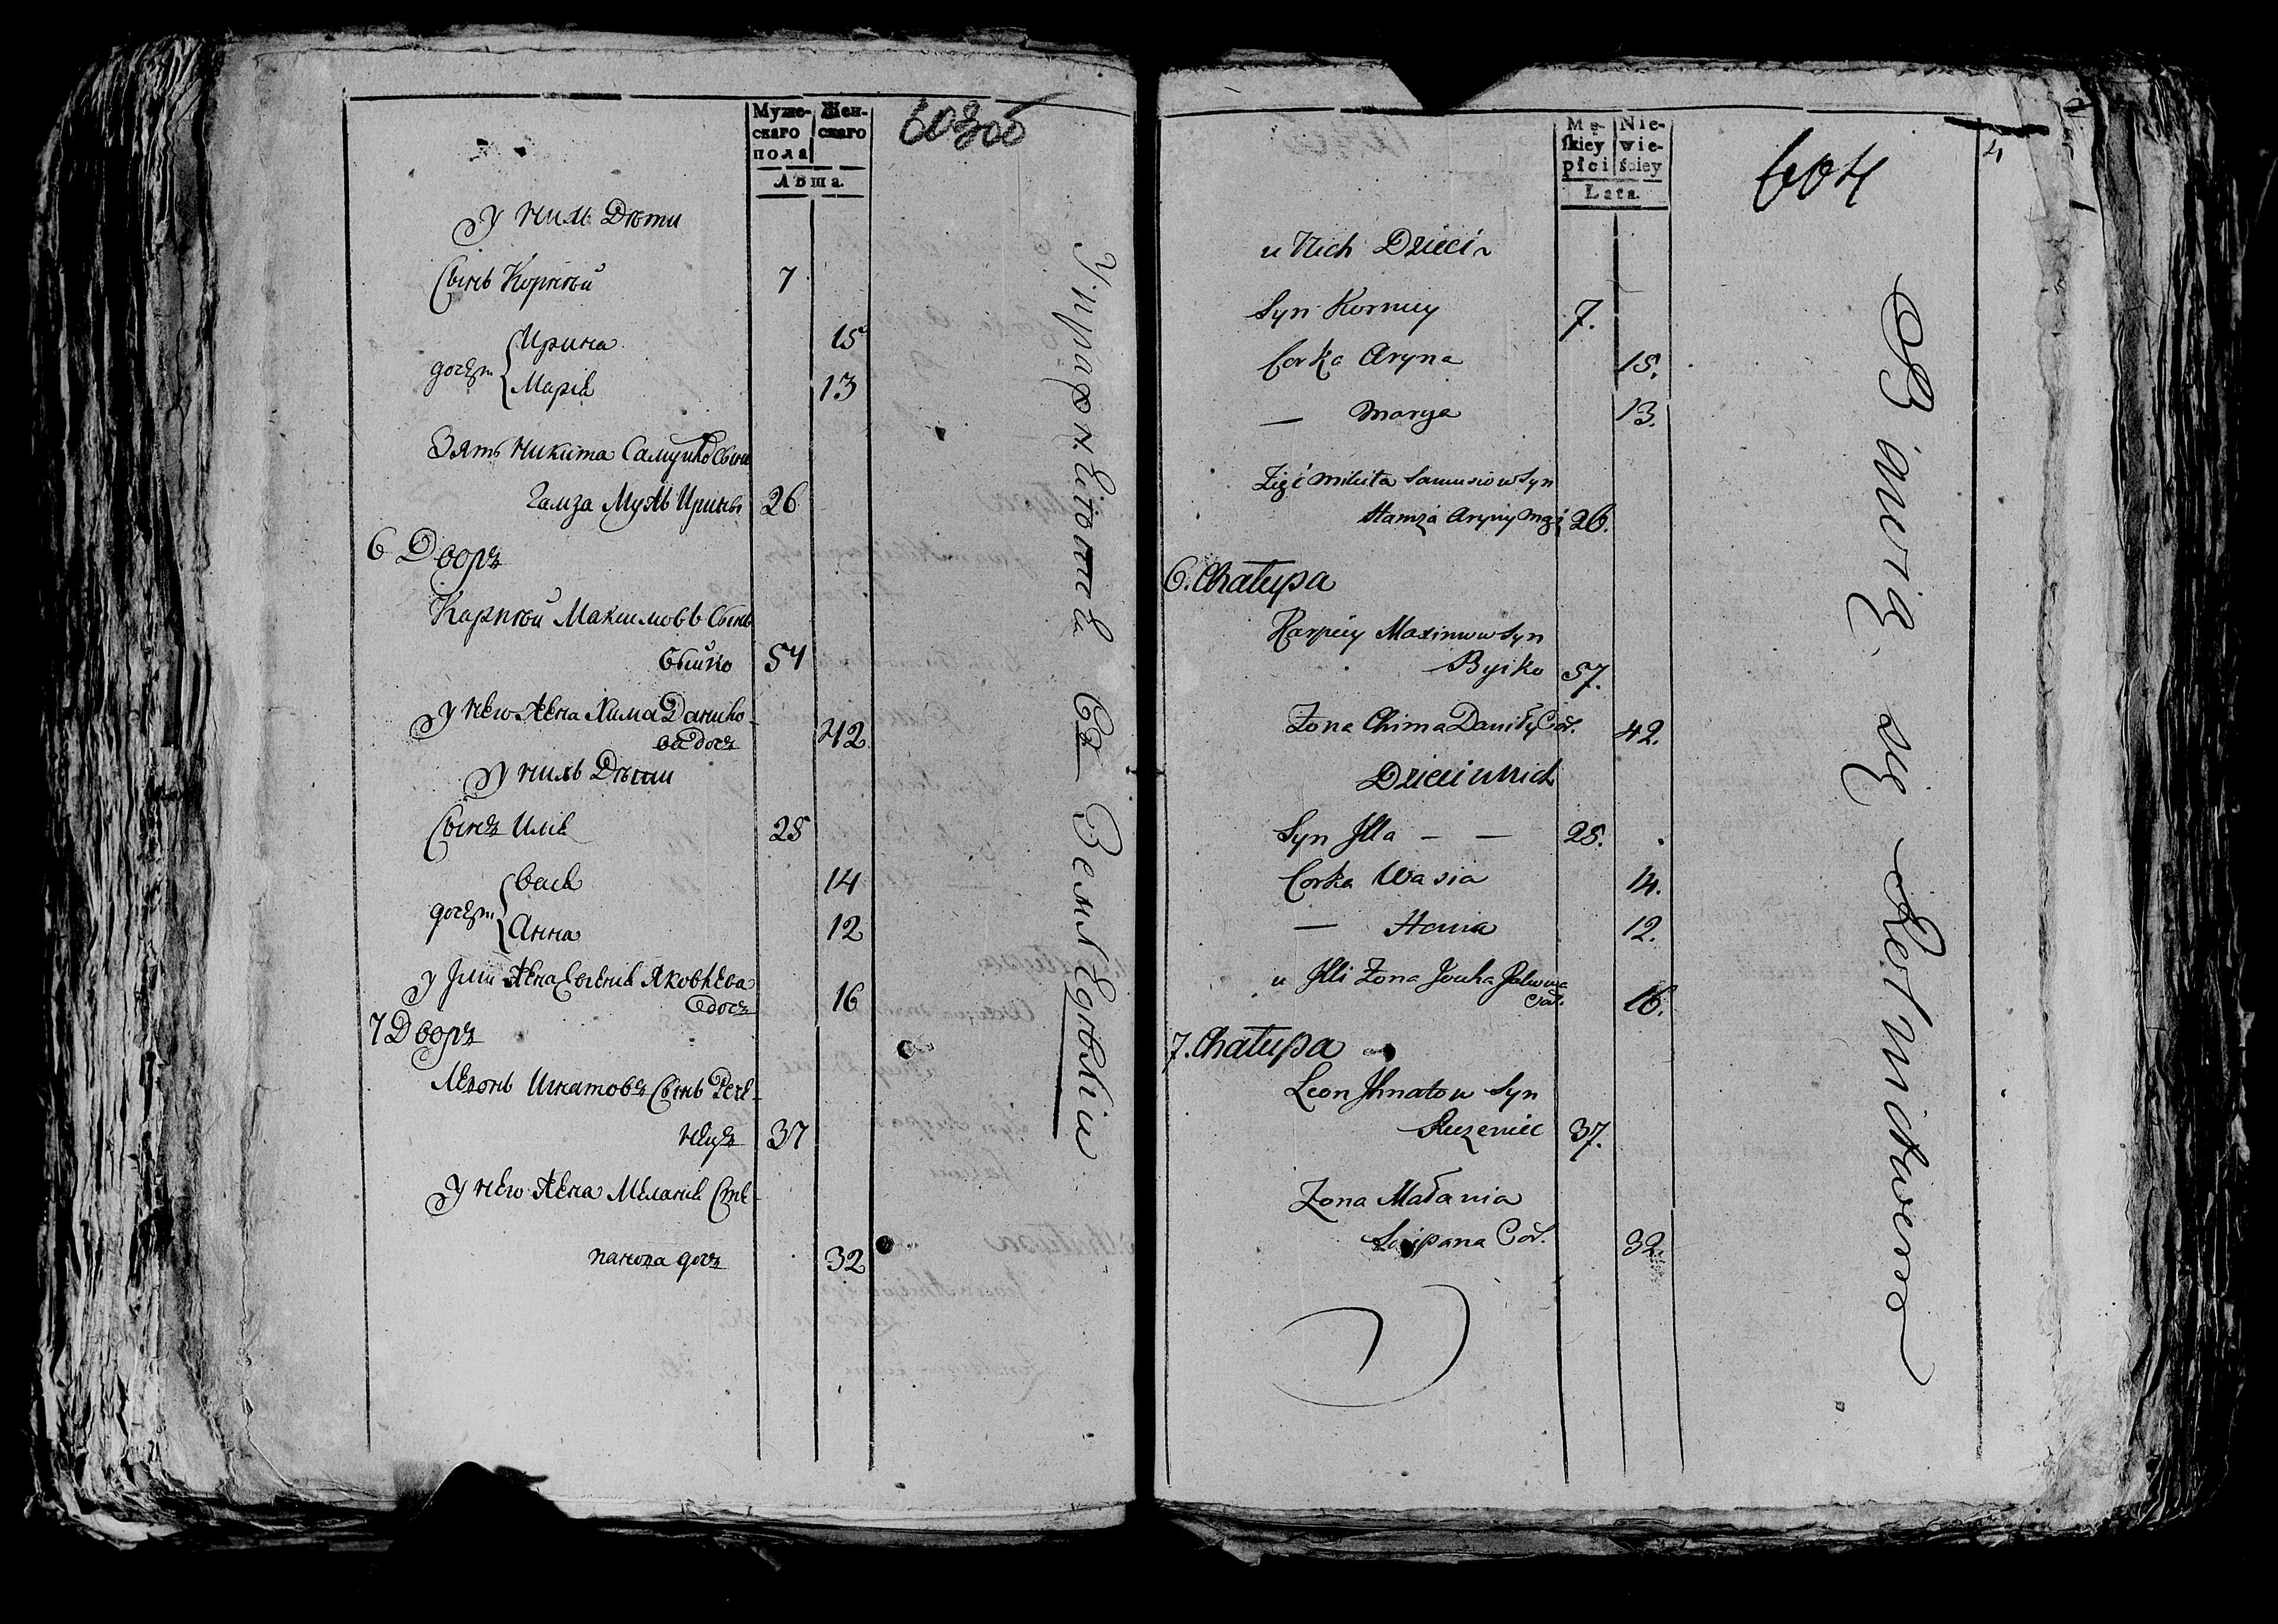 Муже- Жен-
скаго скаго
пола
Лѣта.
603об
У нихъ Дѣти
Сынъ Корнѣй 7
дочери Ирина 15
Марія 13
Зять Никита Самуйло Сынъ
Гамза Мужъ Ирины 26
6 Дворъ
Карпѣй Максимовъ Сынъ
Быйко 57
У него Жена Хима Данило-
ва дочь 42
У нихъ Дѣти
Сынъ Илія 25
дочери Вася 14
Анна 12
У Иліи Жена Евгенія Яковлева
дочь 16
7 Дворъ
Леонъ Игнатовъ Сынъ Рече-
нецъ 37
У него Жена Меланія Сте-
панова дочь 32
Мę- Nie-
skiey wie-
płci ściey
Lata.
604
4
u Nich Dzieci
Syn Korniey 7.
Corka Aryna 15.
— Marya 13.
Zięć Mikita Samusiow Syn
Hamza Aryny Mąż 26.
6. Chałupa
Karpiey Maximow Syn
Byiko 57.
Zona Chima Daniły Cór. 42.
Dzieci u Nich
Syn Illa — — 25.
Corka Wasia 14.
— Hania 12.
u Illi Zona Jouha Jakowa
Cór. 16.
7. Chałupa
Leon Ihnatow Syn
Reczeniec 37.
Zona Małania
Scipana Cór. 32.